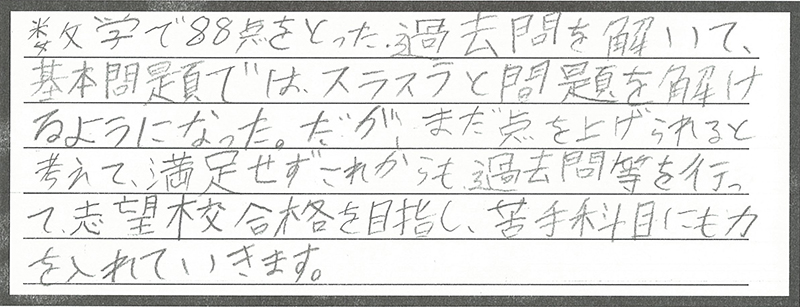 数学で88点をとった.過去問を解いて、
基本問題では、スラスラと問題を解け
るようになった。だが、まだ点を上げられると
考えて、満足せずこれからも、過去問等を行っ
て、志望校合格を目指し、苦手科目にも力
を入れていきます。